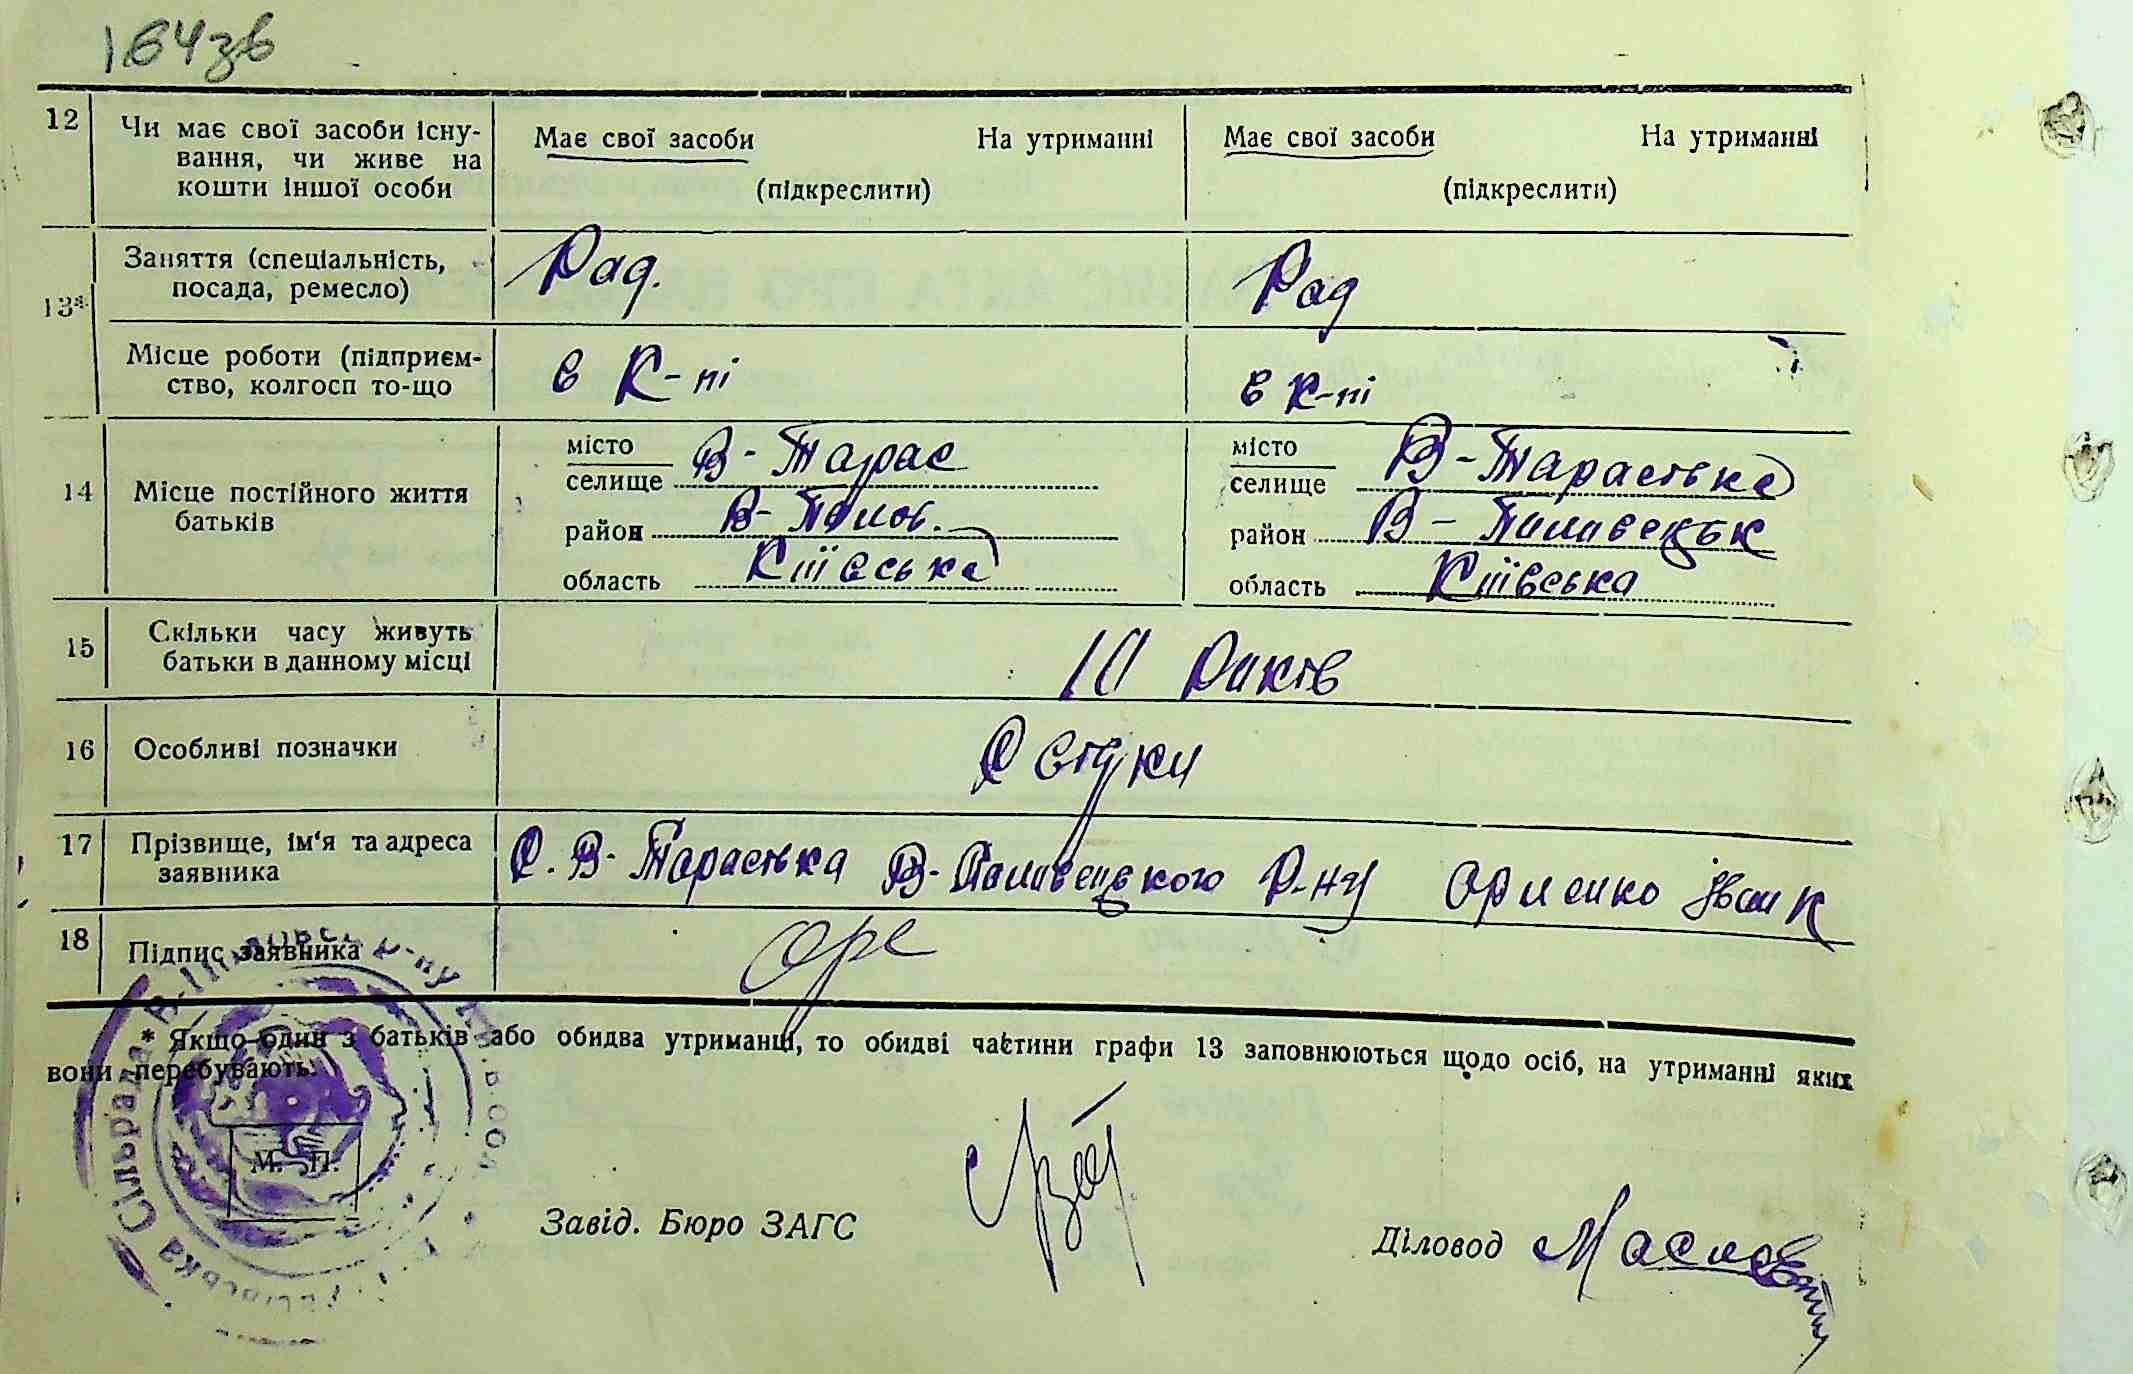 164зв
12 Чи має свої засоби існу-
вання, чи живе на
кошти іншої особи
Має свої засоби На утриманні
(підкреслити)
Має свої засоби На утриманні
(підкреслити)
13* Заняття (спеціальність,
посада, ремесло)
Рад.
Рад
Місце роботи (підприєм-
ство, колгосп то-що
в К-пі
в к-пі
14 Місце постійного життя
батьків
місто
селище В-Тарас
район В-Полов.
область Київська
місто
селище В-Тараська
район В-Половецьк
область Київська
15 Скільки часу живуть
батьки в данному місці
10 Років
16 Особливі позначки
17 Прізвище, ім'я та адреса
заявника
С. В-Тараська В-Половецького Р-ну Іван К
18 Підпис заявника
* Якщо один з батьків або обидва утриманці, то обидві частини графи 13 заповнюються щодо осіб, на утриманні яких
вони перебувають.
М. П.
Сільрада
Завід. Бюро ЗАГС
Діловод